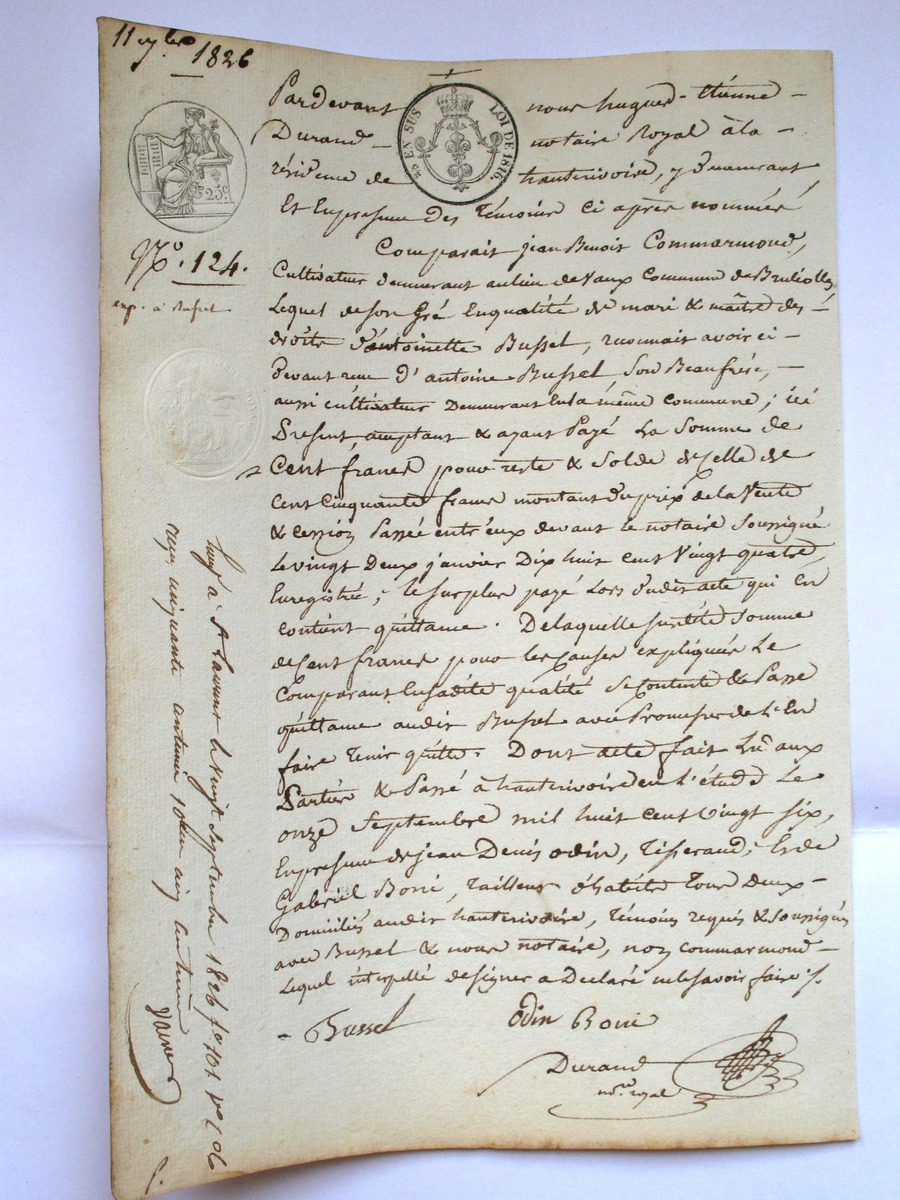 11 7bre 1826
25c
EN SUS LOI DE 1816.
N° 124.
exp. à Bussel
Pardevant nous hugues-Etienne
Durand notaire Royal à la
résidence de hauterivoire, y demeurant
Et En presence des Témoins ci après nommés
Comparait jean Benoit Commarmond,
Cultivateur demeurant au lieu de Vaux Commune de Brullolles,
Lequel de son Gré En qualité de mari & maître des
droits d'antoinette Bussel, reconnait avoir ci
devant recu d'antoine Bussel Son Beaufrére,
aussi cultivateur Demeurant En la même commune; ici
Present, acceptant & ayant Payé La Somme de
Cent francs pour reste & Solde de Celle de
Cent Cinquante francs montant du prix de la Vente
& cession Passée entr'eux devant le notaire Soussigné
Le vingt Deux janvier Dix huit cent Vingt quatre,
Enregistrée; le Surplus payé Lors dudit acte qui En
contient quittance. De laquelle susdite Somme
de Cent francs pour les Causes expliquées Le
Comparant En sadite qualité Se Contente & Passe
quittance audit Bussel avec Promesse de L'En
faire Tenir quitte. Dont acte fait Lu aux
Parties & Passé à hauterivoire en L'étude Le
onze Septembre mil huit Cent Vingt Six,
En presence de jean Denis Odin, Tisserand, Et de
Gabriel Boni, Tailleur d'habits Tous Deux
Domiciliés audit hauterivoire, Témoins requis & Soussignés
avec Bussel & nous notaire, non Commarmond
Lequel interpellé de signer a Declaré ne le savoir faire ./.
Bussel Odin Boni
Durand
not.re royal
à St Laurent le vingt Septembre 1826 f° 101
reçu cinquante centimes